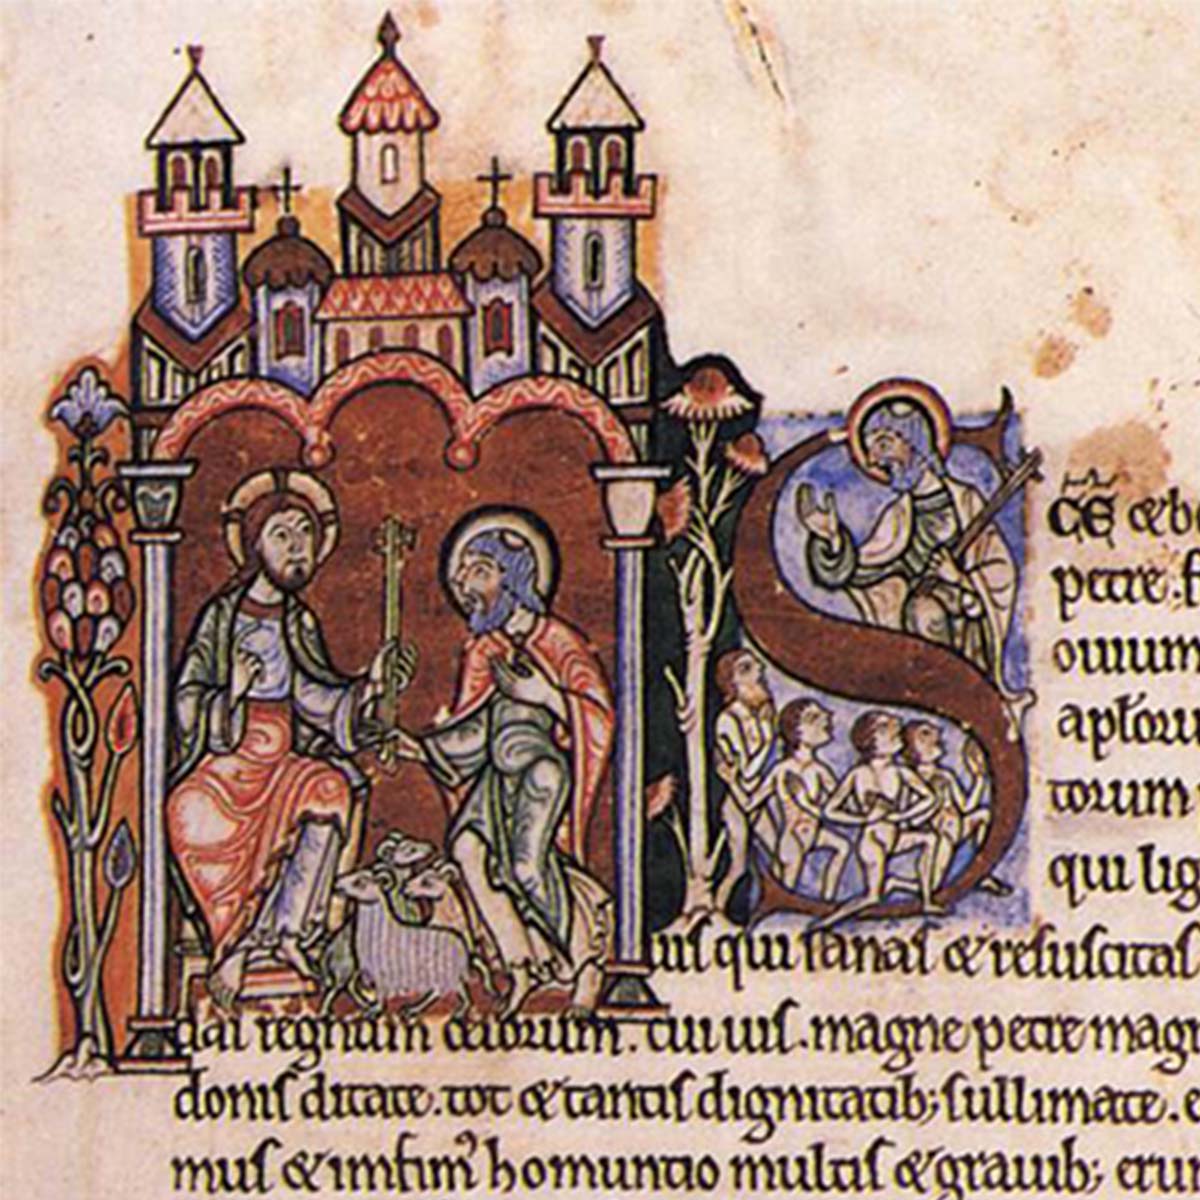 S CE & b
petre. f
ouium
aplor
torum
qui lig
uiſ qui ſanaſ & reſuſcitaſ
daſ regnum celorum. cui uiſ. magne petre magn
doniſ ditate. tot & tantiſ dignitatib; ſullimate. e
muſ & infimꝰ homuncio multiſ & grauib; eru